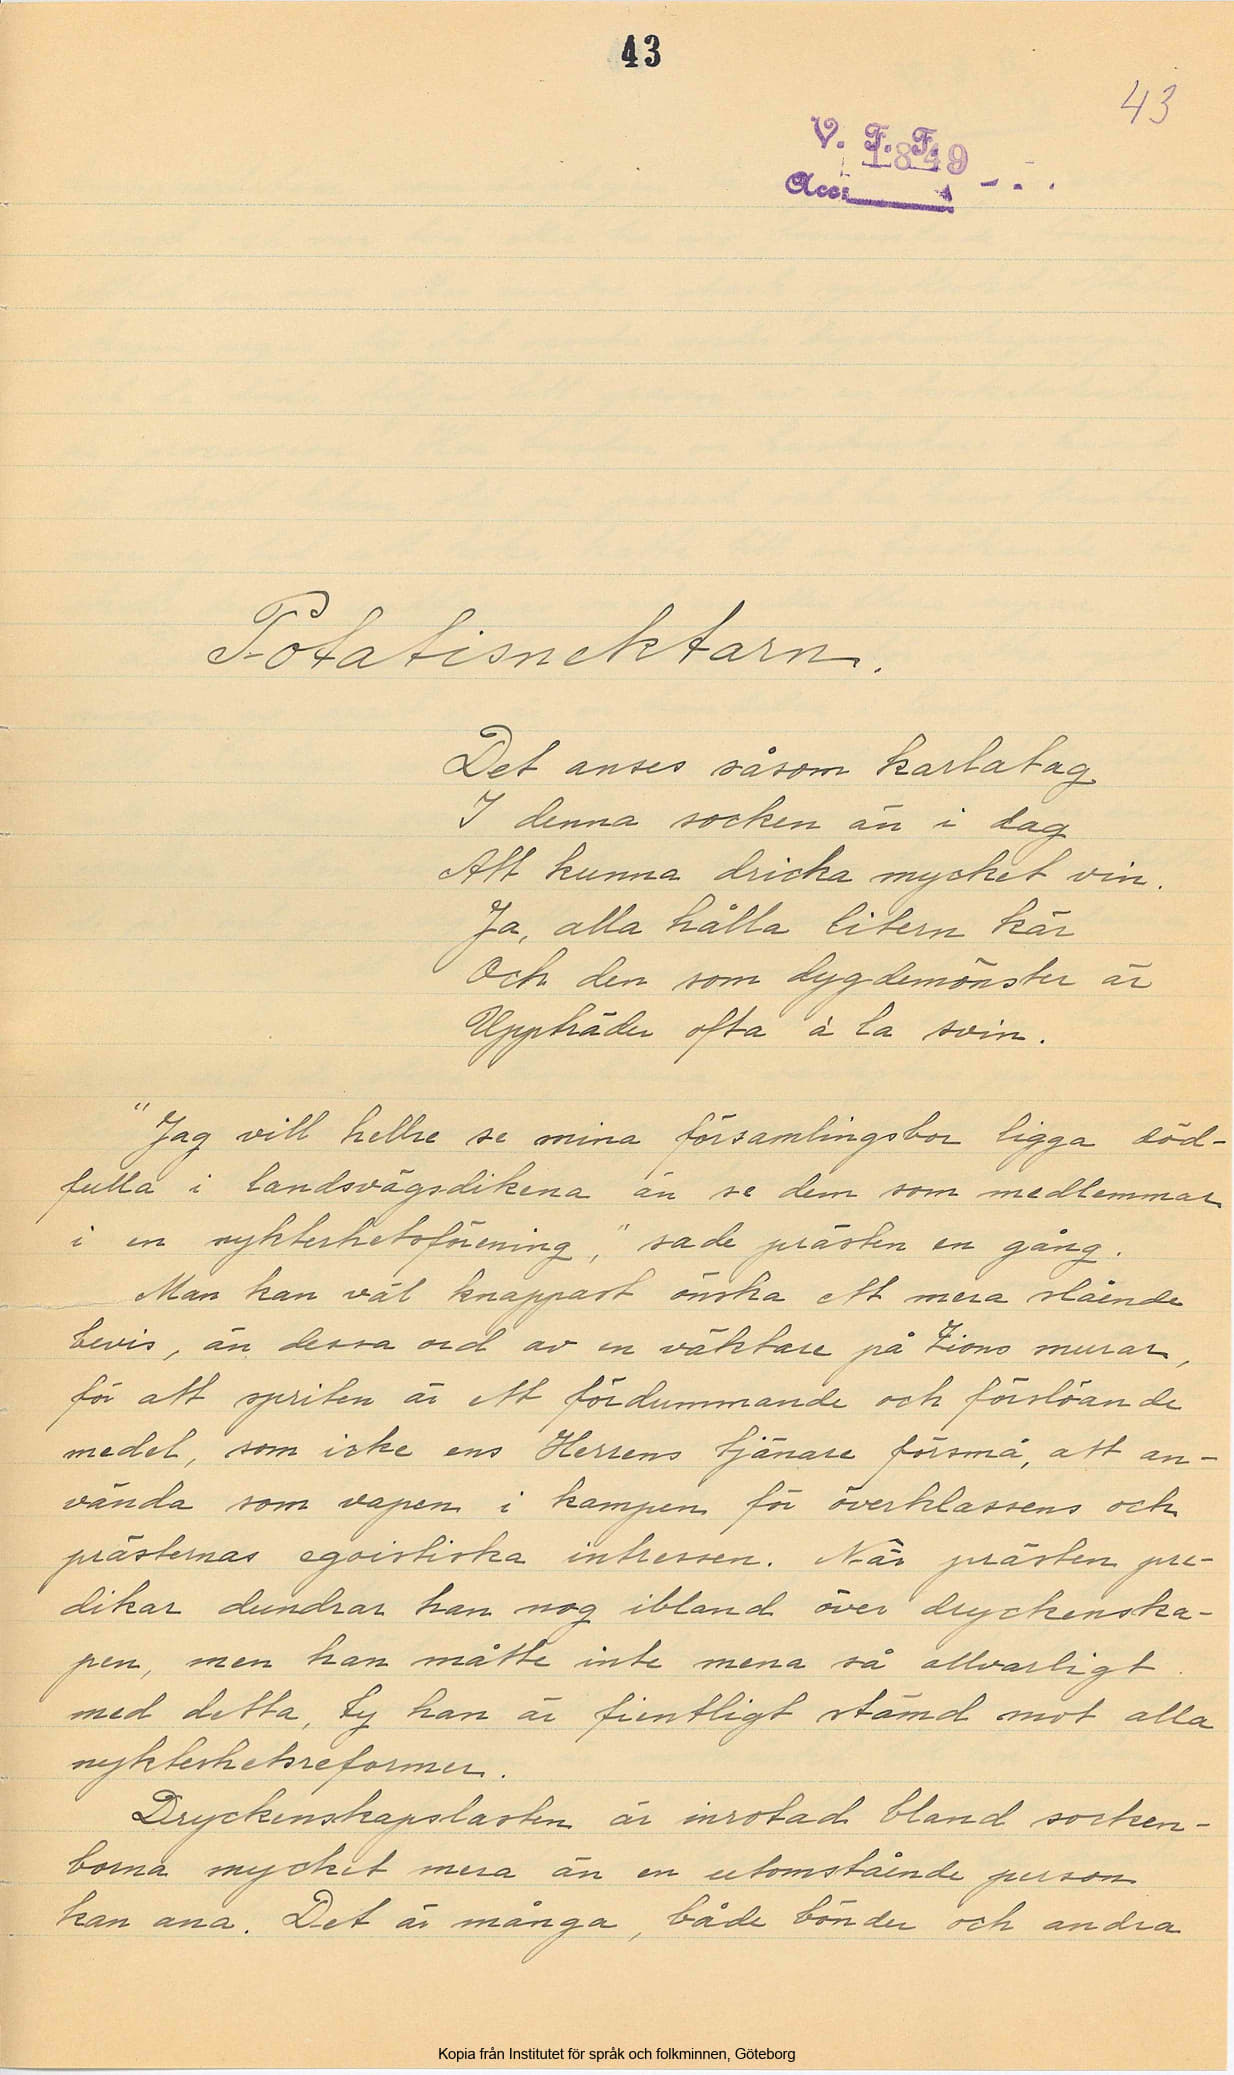 43
43
V. F. F.
1849
Acc:
Potatisnektarn.
Det anses såsom karlatag
I denna socken än i dag
Att kunna dricka mycket vin.
Ja, alla hålla litern kär
Och den som dygdemönster är
Uppträder ofta à la svin.
"Jag vill hellre se mina församlingsbor ligga död-
fulla i landsvägsdikena än se dem som medlemmar
i en nykterhetsförening," sade prästen en gång.
Man kan väl knappast önska ett mera slående
bevis, än dessa ord av en väktare på Zions murar,
för att spriten är ett fördummande och förslöande
medel, som icke ens Herrens tjänare försmå, att an-
vända som vapen i kampen för överklassens och
prästernas egoistiska intressen. När prästen pre-
dikar dundrar han nog ibland över dryckenska-
pen, men han måtte inte mena så allvarligt
med detta, ty han är fientligt stämd mot alla
nykterhetsreformer.
Dryckenskapslasten är inrotad bland socken-
borna mycket mera än en utomstående person
kan ana. Det är många, både bönder och andra
Kopia från Institutet för språk och folkminnen, Göteborg